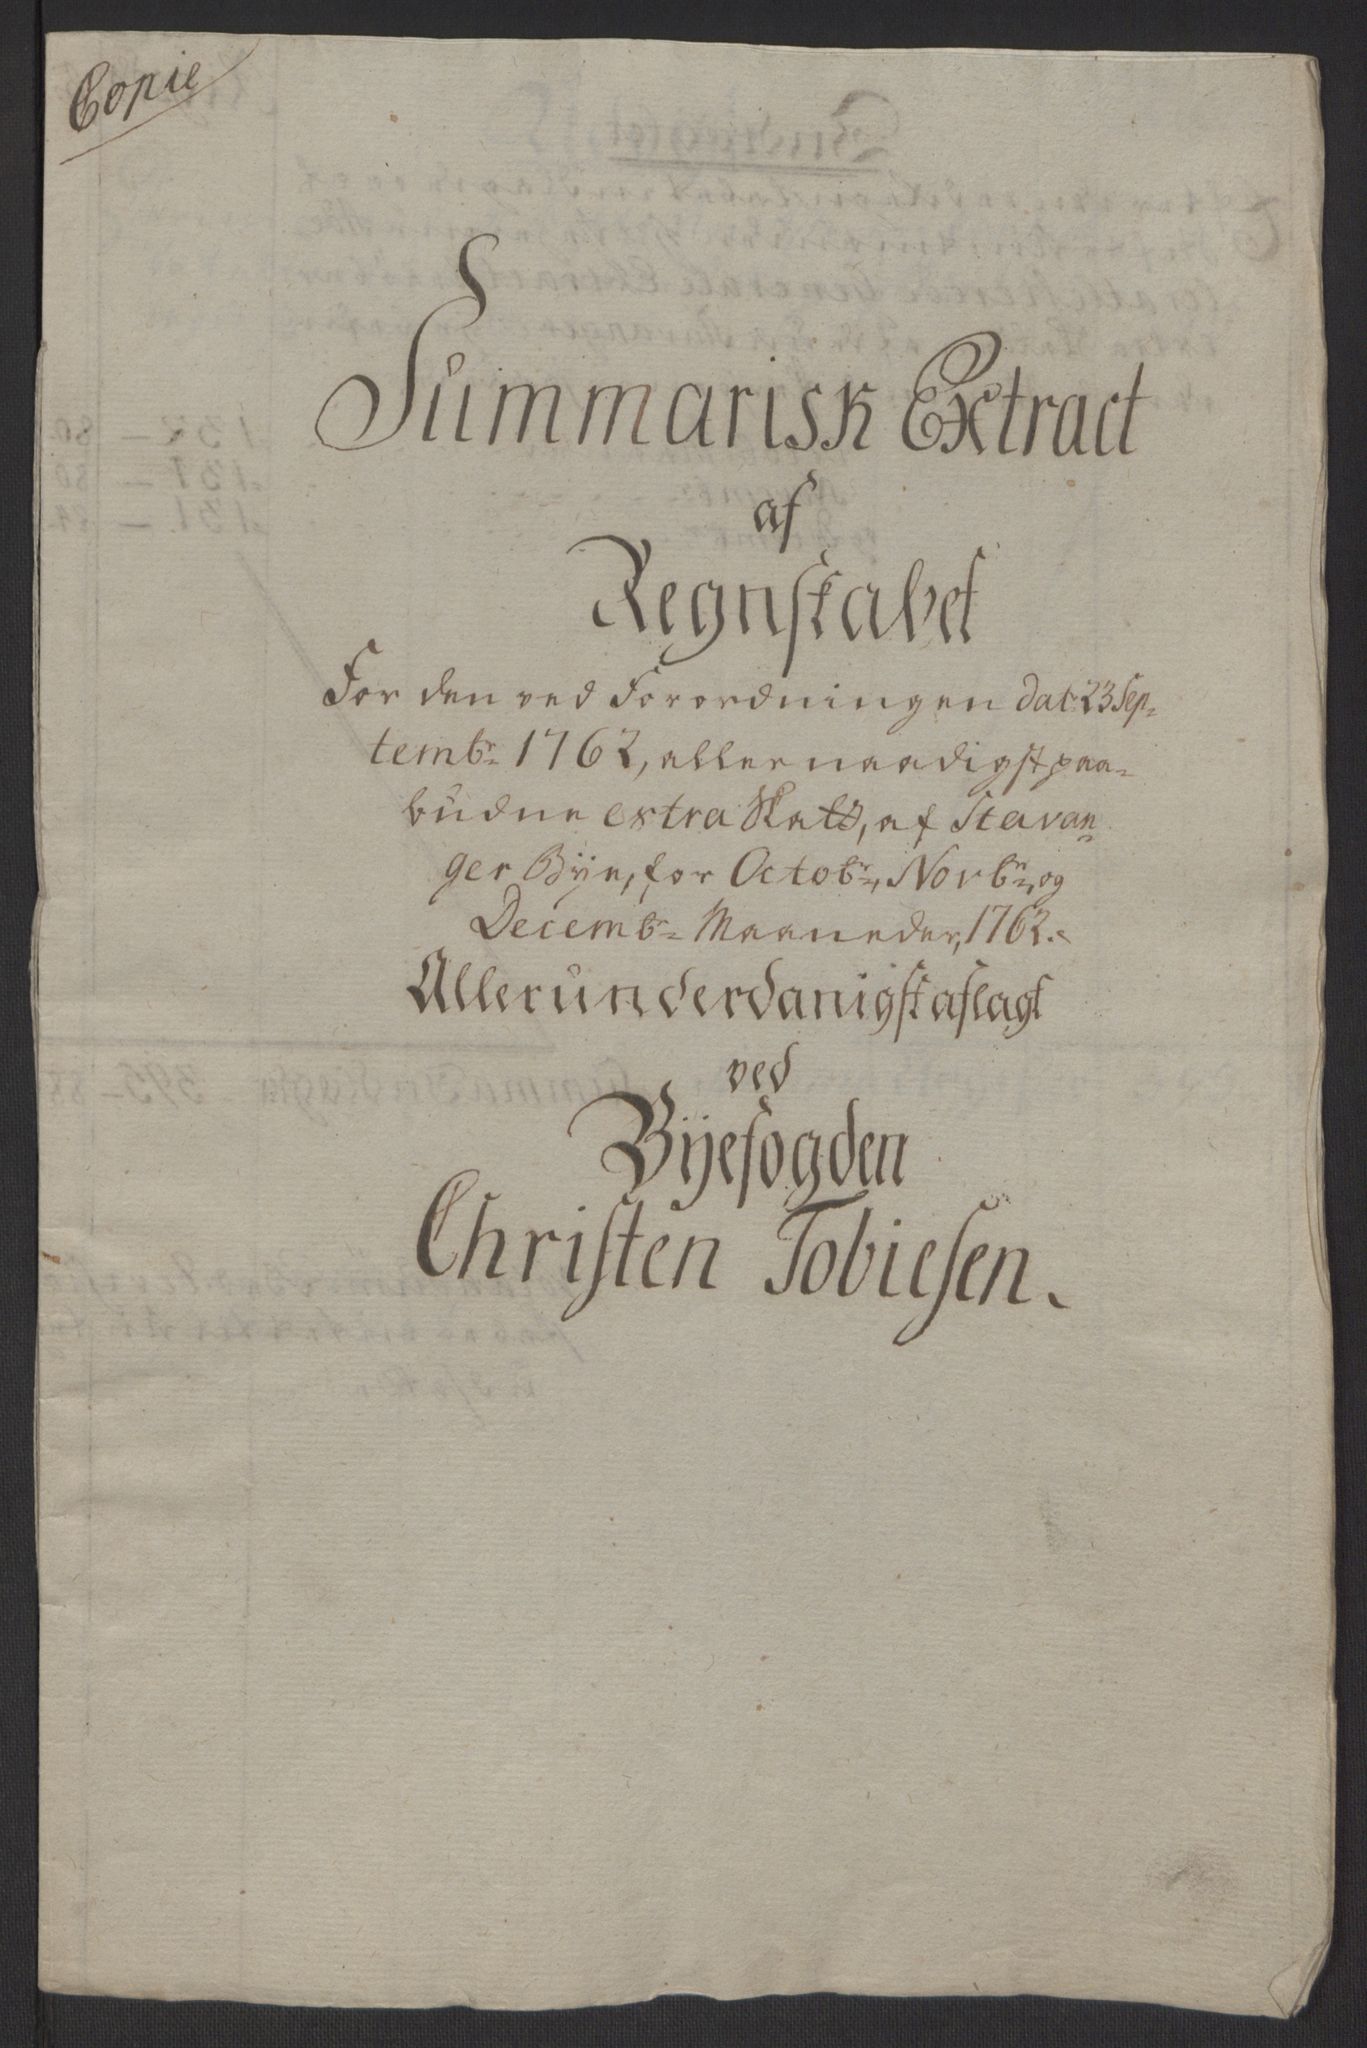 Copie
Summarisk Extract
af
Regnskabet
For den ved Forordningen dat: 23 Sep-
tembr 1762, allernaadigst paa-
budne extra Skatt, af Stavan-
ger Bÿe, for Octobr, Novbr, og
Decembr Maaneder, 1762.
Allerunderdanigst aflagt
ved
Bÿefogden
Christen Tobiesen.